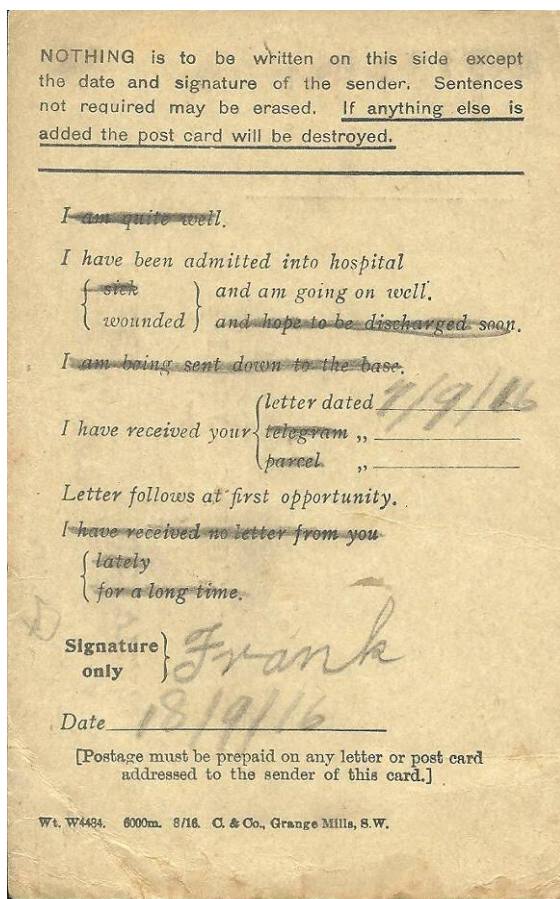 NOTHING is to be written on this side except
the date and signature of the sender. Sentences
not required may be erased. If anything else is
added the post card will be destroyed.
I am quite well.
I have been admitted into hospital
sick } and am going on well.
wounded } and hope to be discharged soon.
I am being sent down to the base.
letter dated 7/9/16
I have received your telegram „
parcel „
Letter follows at first opportunity.
I have received no letter from you
lately
for a long time.
Signature
only } Frank
Date 18/9/16
[Postage must be prepaid on any letter or post card
addressed to the sender of this card.]
Wt. W4484. 6000m. 8/16. C. & Co., Grange Mills, S.W.